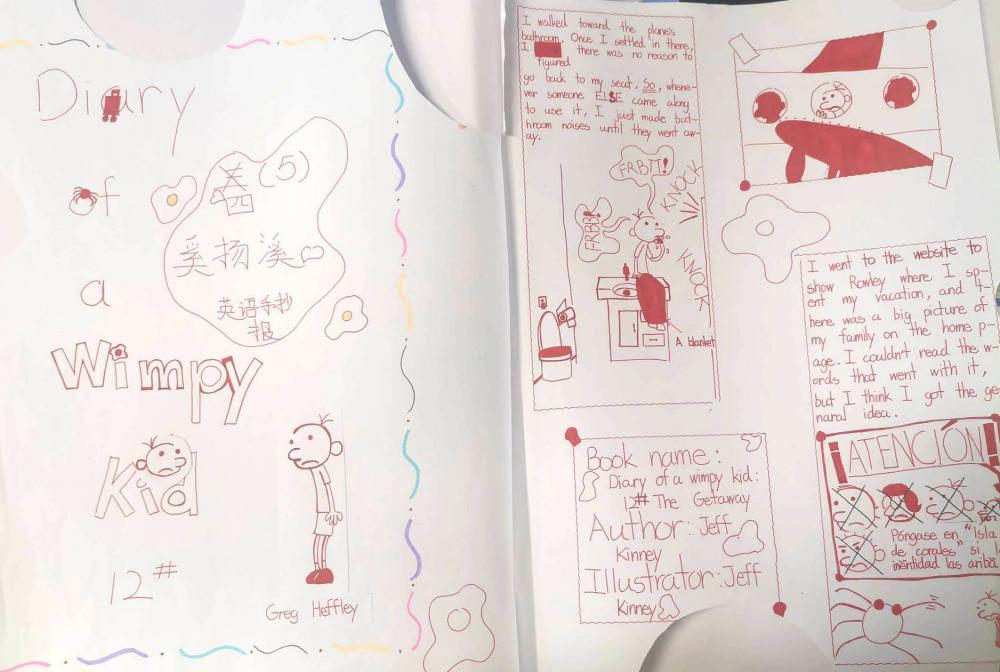 Diary
of
a
Wimpy
Kid
12#
叁(5)
班
奚扬溪
英语手抄
报
Greg Heffley
I walked toward the plane's
bathroom. Once I settled in there,
I there was no reason to
figured
go back to my seat. So, whene-
ver someone ELSE came along
to use it, I just made bat-
hroom noises until they went aw-
ay.
FRBTT!
KNOCK
FRBB!
KNOCK
A blanket
Book name:
Diary of a wimpy kid:
12# The Getaway
Author: Jeff
Kinney
Illustrator: Jeff
Kinney
I went to the website to
show Rowley where I sp-
ent my vacation, and t-
here was a big picture of
my family on the home p-
age. I couldn't read the w-
ords that went with it,
but I think I got the ge-
naral idea.
¡ATENCIÓN!
Póngase en "Isla
de corales" si i
inentidad las arriba